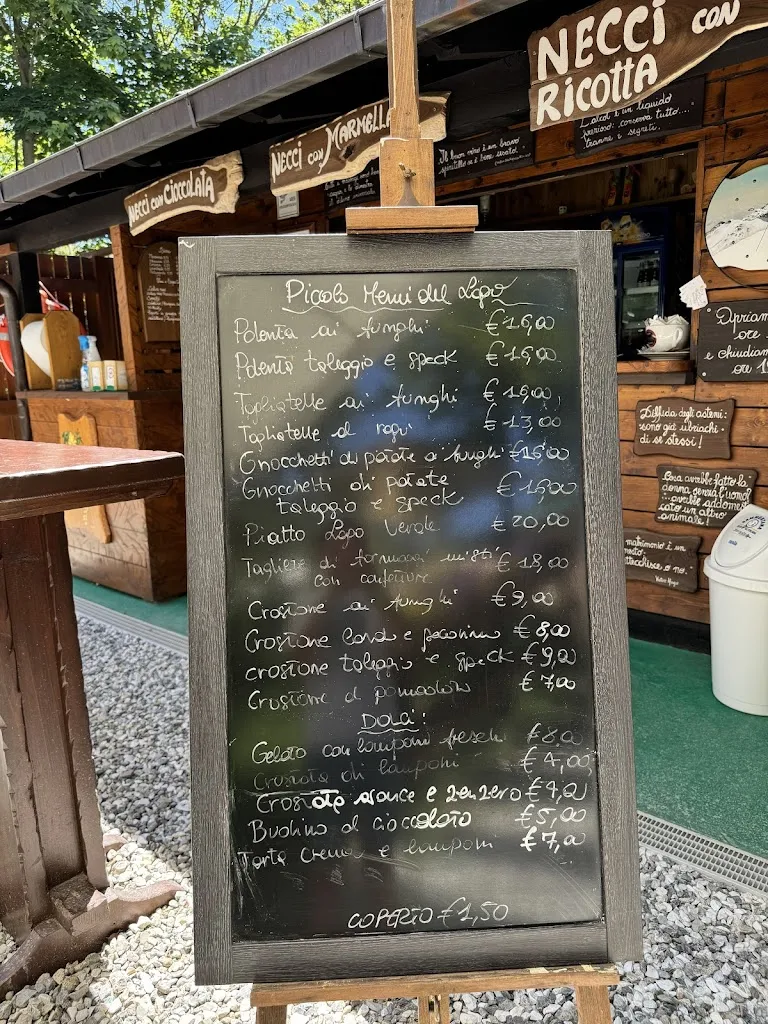 NECCI CON
RICOTTA
NECCI CON MARMELLA
NECCI CON CIOCCOLATA
L'alcol è un liquido
prezioso: conserva tutto...
tranne i segreti.
Piccolo Menù del Lupo
Polenta ai funghi €16,00
Polenta taleggio e speck €16,00
Tagliatelle ai funghi €16,00
Tagliatelle al ragù €13,00
Gnocchetti di patate ai funghi €16,00
Gnocchetti di patate
taleggio e speck €16,00
Piatto Lupo Verde €20,00
Tagliere di formaggi misti €18,00
con confetture
Crostone ai funghi €9,00
Crostone lardo e pecorino €8,00
crostone taleggio e speck €9,00
Crostone al pomodoro €7,00
DOLCI:
Gelato con lamponi freschi €8,00
Crostata di lamponi €4,00
Crostata arance e zenzero €4,00
Budino al cioccolato €5,00
Torta crema e lamponi €7,00
COPERTO €1,50
Apriam
ore
e chiudiam
ore 1
Diffida degli astemi:
sono già ubriachi
di se stessi!
donna senza l'uomo
...avrebbe addome
cato un altro
animale!
matrimonio è un
Victor Hugo